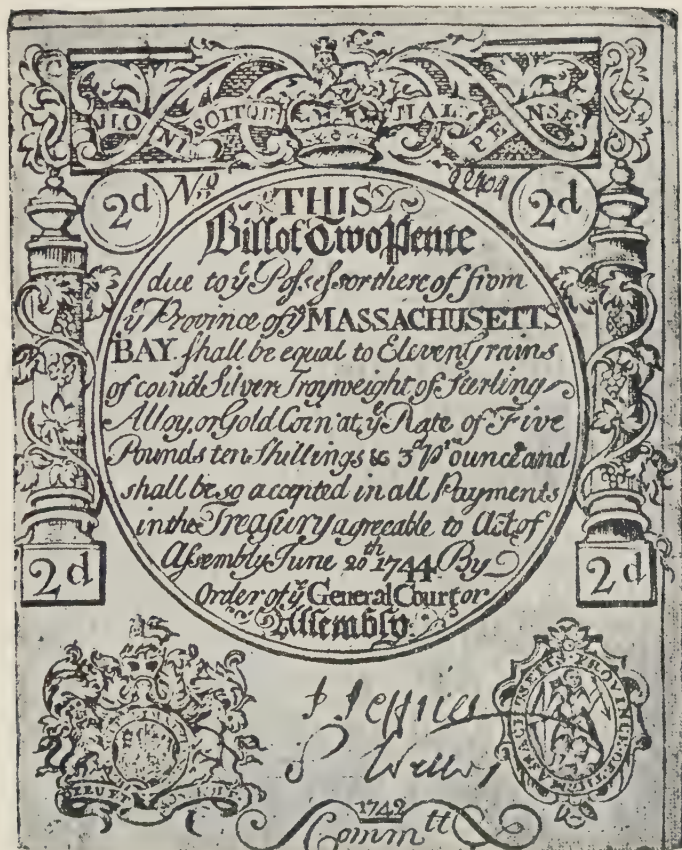 HONI SOIT QUI MAL Y PENSE
2d No 2d
THIS
Bill of Two Pence
due to yᵉ Possessor thereof from
yᵉ Province of yᵉ MASSACHUSETTS
BAY shall be equal to Eleven Grains
of coind Silver Troyweight of sterling
Alloy, or Gold Coin at yᵉ Rate of Five
Pounds ten shillings & 3ᵈ pʳ ounce and
shall be so accepted in all Payments
in the Treasury agreeable to Act of
Assembly June 20ᵗʰ 1744 By
Order of yᵉ General Court or
Assembly.
2d 2d
J Jeffries
1742
Committ